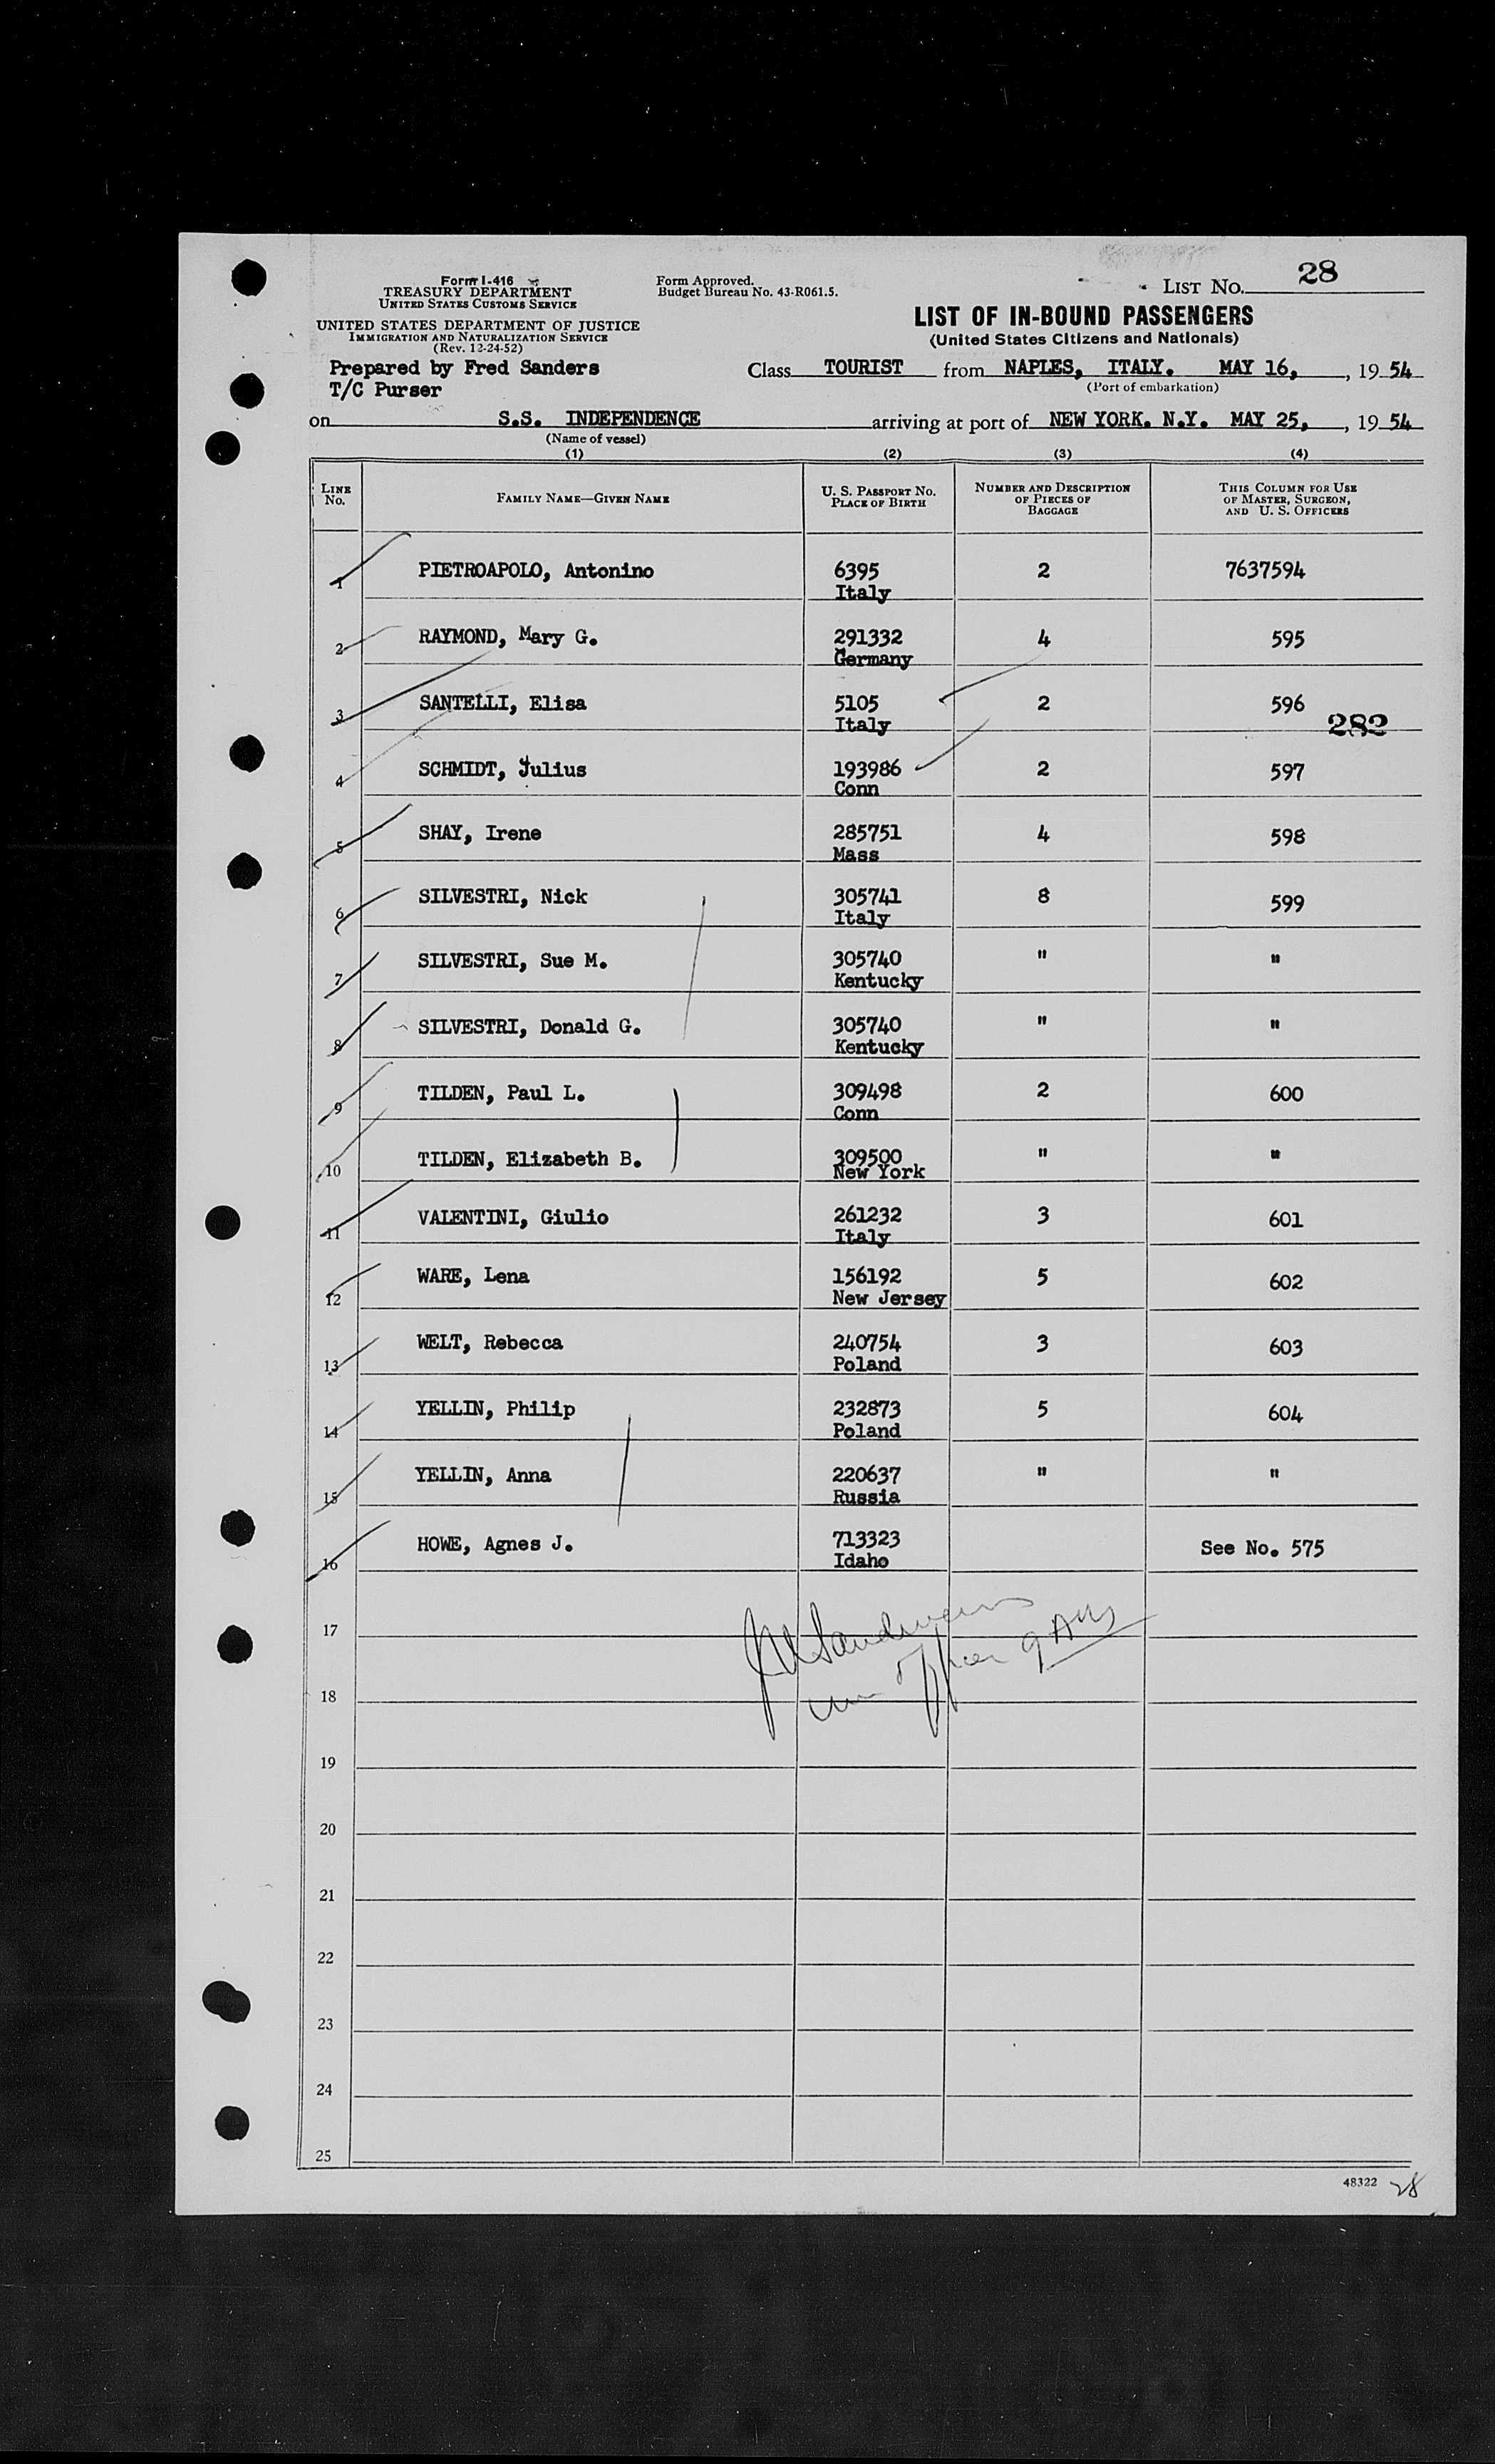 Form I-416
TREASURY DEPARTMENT
UNITED STATES CUSTOMS SERVICE
UNITED STATES DEPARTMENT OF JUSTICE
IMMIGRATION AND NATURALIZATION SERVICE
(Rev. 12-24-52)
Form Approved.
Budget Bureau No. 43-R061.5.
LIST NO. 28
LIST OF IN-BOUND PASSENGERS
(United States Citizens and Nationals)
Prepared by Fred Sanders
T/C Purser
Class TOURIST from NAPLES, ITALY. MAY 16, , 19 54
(Port of embarkation)
on S.S. INDEPENDENCE arriving at port of NEW YORK. N.Y. MAY 25, , 19 54
(Name of vessel)
(1) (2) (3) (4)
LINE NO. FAMILY NAME—GIVEN NAME U. S. PASSPORT NO. PLACE OF BIRTH NUMBER AND DESCRIPTION OF PIECES OF BAGGAGE THIS COLUMN FOR USE OF MASTER, SURGEON, AND U. S. OFFICERS
1 PIETROAPOLO, Antonino 6395 2 7637594
Italy
2 RAYMOND, Mary G. 291332 4 595
Germany
3 SANTELLI, Elisa 5105 2 596
Italy 282
4 SCHMIDT, Julius 193986 2 597
Conn
5 SHAY, Irene 285751 4 598
Mass
6 SILVESTRI, Nick 305741 8 599
Italy
7 SILVESTRI, Sue M. 305740 " "
Kentucky
8 SILVESTRI, Donald G. 305740 " "
Kentucky
9 TILDEN, Paul L. 309498 2 600
Conn
10 TILDEN, Elizabeth B. 309500 " "
New York
11 VALENTINI, Giulio 261232 3 601
Italy
12 WARE, Lena 156192 5 602
New Jersey
13 WELT, Rebecca 240754 3 603
Poland
14 YELLIN, Philip 232873 5 604
Poland
15 YELLIN, Anna 220637 " "
Russia
16 HOWE, Agnes J. 713323 See No. 575
Idaho
17
18
19
20
21
22
23
24
25
48322 28